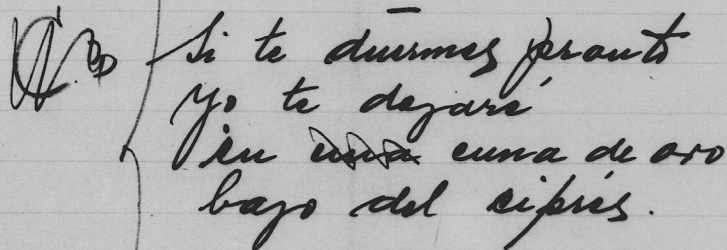 Si te duermes pronto
yo te dejaré
en una cuna de oro
bajo del ciprés.